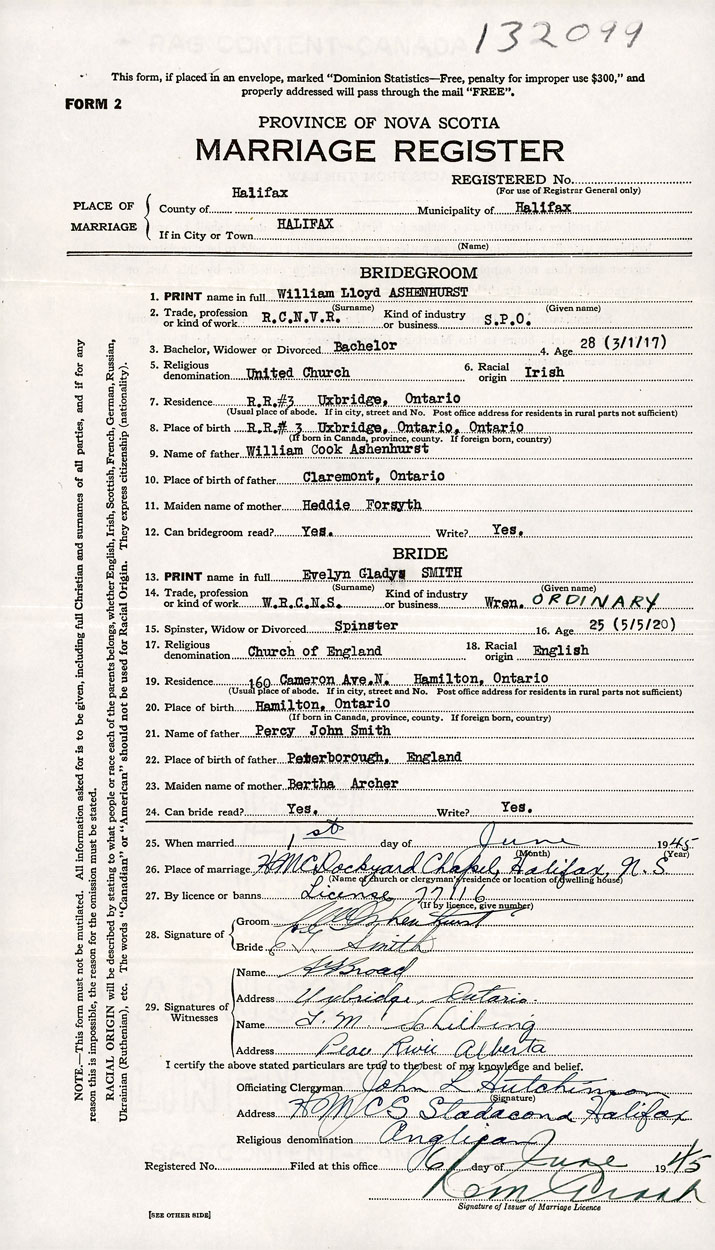 132099
This form, if placed in an envelope, marked “Dominion Statistics—Free, penalty for improper use $300,” and
properly addressed will pass through the mail “FREE”.
FORM 2
PROVINCE OF NOVA SCOTIA
MARRIAGE REGISTER
REGISTERED No.
(For use of Registrar General only)
PLACE OF MARRIAGE
County of Halifax Municipality of Halifax
If in City or Town HALIFAX
(Name)
BRIDEGROOM
1. PRINT name in full William Lloyd ASHENHURST
(Surname) (Given name)
2. Trade, profession or kind of work R.C.N.V.R. Kind of industry or business S.P.O.
3. Bachelor, Widower or Divorced Bachelor 4. Age 28 (3/1/17)
5. Religious denomination United Church 6. Racial origin Irish
7. Residence R.R.#3 Uxbridge, Ontario
(Usual place of abode. If in city, street and No. Post office address for residents in rural parts not sufficient)
8. Place of birth R.R.# 3 Uxbridge, Ontario, Ontario
(If born in Canada, province, county. If foreign born, country)
9. Name of father William Cook Ashenhurst
10. Place of birth of father Claremont, Ontario
11. Maiden name of mother Heddie Forsyth
12. Can bridegroom read? Yes. Write? Yes.
BRIDE
13. PRINT name in full Evelyn Gladys SMITH
(Surname) (Given name)
14. Trade, profession or kind of work W.R.C.N.S. Kind of industry or business Wren. ORDINARY
15. Spinster, Widow or Divorced Spinster 16. Age 25 (5/5/20)
17. Religious denomination Church of England 18. Racial origin English
19. Residence 160 Cameron Ave.N. Hamilton, Ontario
(Usual place of abode. If in city, street and No. Post office address for residents in rural parts not sufficient)
20. Place of birth Hamilton, Ontario
(If born in Canada, province, county. If foreign born, country)
21. Name of father Percy John Smith
22. Place of birth of father Peterborough, England
23. Maiden name of mother Bertha Archer
24. Can bride read? Yes. Write? Yes.
25. When married 1st day of June 1945
(Month) (Year)
26. Place of marriage HMC Dockyard Chapel, Halifax, N.S.
(Name of church or clergyman's residence or location of dwelling house)
27. By licence or banns License 77116
(If by licence, give number)
28. Signature of
Groom Ashenhurst
Bride Smith
29. Signatures of Witnesses
Name Broad
Address Uxbridge, Ontario.
Name
Address Peace River Alberta
I certify the above stated particulars are true to the best of my knowledge and belief.
Officiating Clergyman John L Hutchinson
(Signature)
Address HMCS Stadacona Halifax
Religious denomination Anglican
Registered No. Filed at this office 6 day of June 1945
Signature of Issuer of Marriage Licence
[SEE OTHER SIDE]
NOTE.—This form must not be mutilated. All information asked for is to be given, including full Christian and surnames of all parties, and if for any
reason this is impossible, the reason for the omission must be stated.
RACIAL ORIGIN will be described by stating to what people or race each of the parents belongs, whether English, Irish, Scottish, French, German, Russian,
Ukrainian (Ruthenian), etc. The words “Canadian” or “American” should not be used for Racial Origin. They express citizenship (nationality).